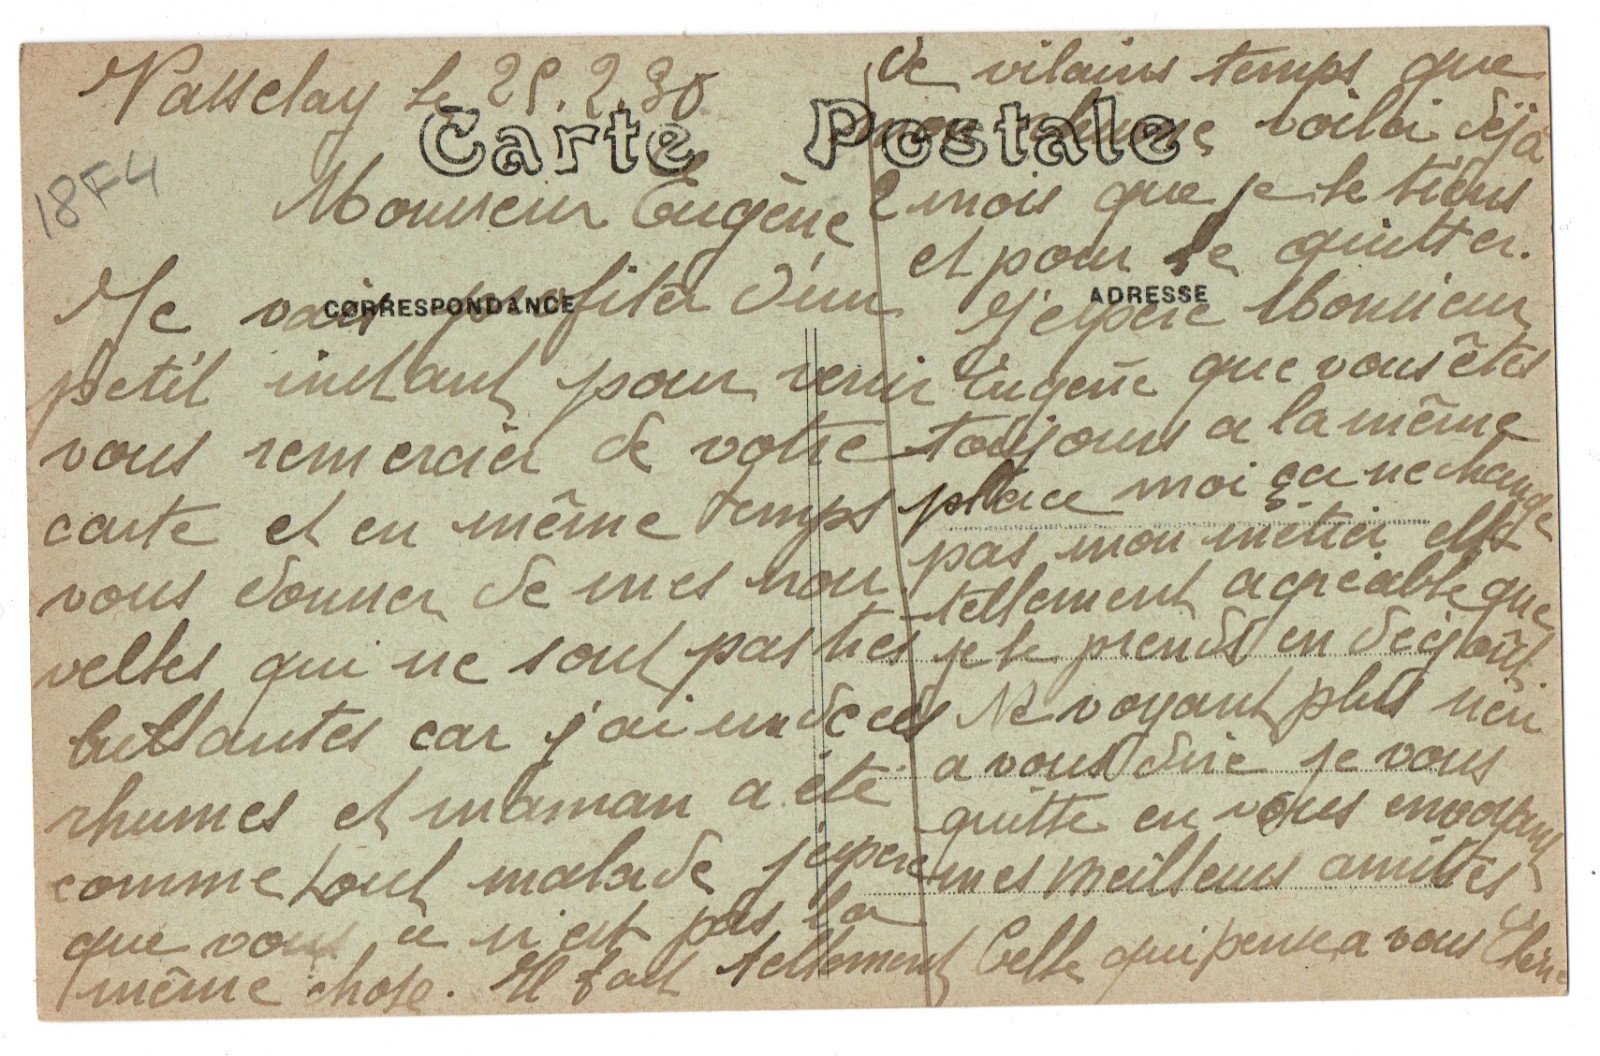 Vasselay le 25.2.30
Carte Postale
18F4
Monsieur Eugène
CORRESPONDANCE
Je vais profiter d'un
petit instant pour venir
vous remercier de votre
carte et en même temps
vous donner de mes nou
velles qui ne sont pas très
brillantes car j'ai un de ces
rhumes et maman a été
comme tout malade j'espère
que vous ce n'est pas la
même chose. Il fait tellement
de vilains temps que
voilà déjà
2 mois que je le tiens
et pour le quitter.
ADRESSE
J'espère Monsieur
Eugène que vous êtes
toujours a la même
place moi ça ne change
pas mon métier est
tellement agréable que
je le prends en dégoût
Ne voyant plus rien
a vous dire je vous
quitte en vous envoyant
mes meilleurs amitiés
Celle qui pense a vous